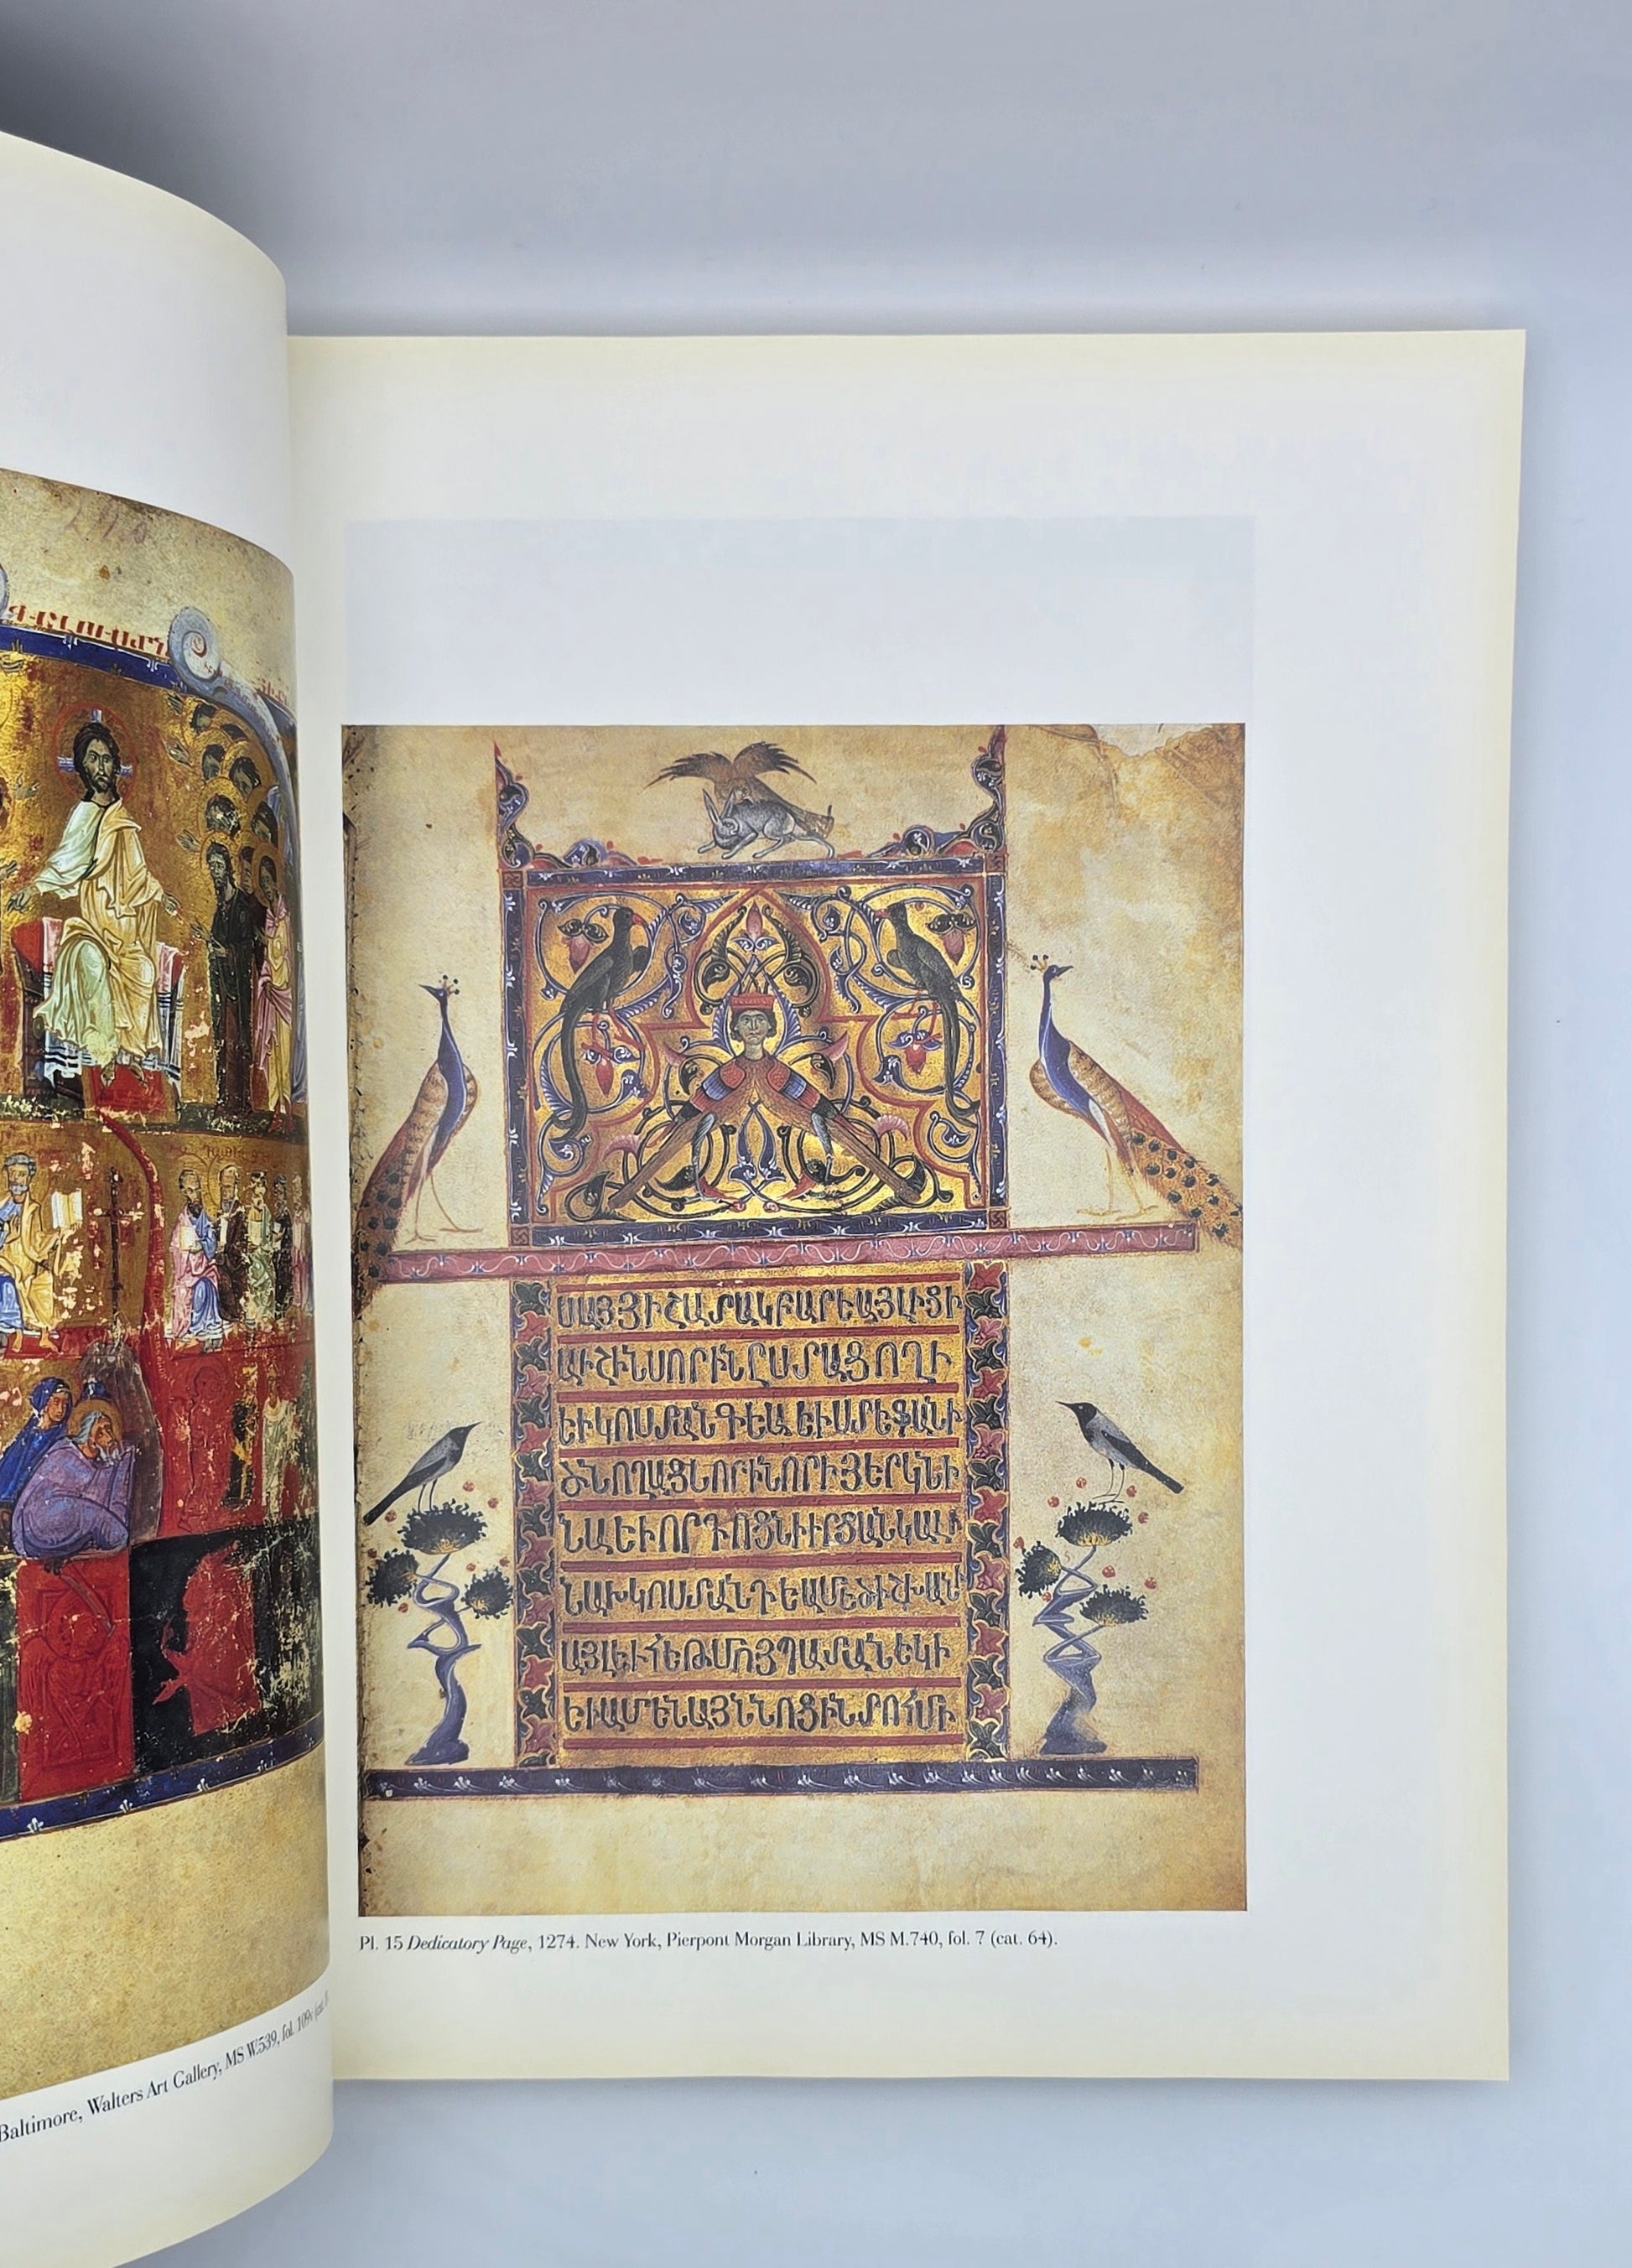 Baltimore, Walters Art Gallery, MS W.539, fol. 109v (cat.
ՍԱՅՅԻՇԱՏԱԿԲԱՐԵԱՅԼԻՑԻ
ԱՒՇԻՆՍՈՐԻՆԸՍՏԱՑՈՂԻ
ԵՒԿՈՍՏԱՆԴԵԱ ԵՒՍՏԵՖԱՆԻ
ԾՆՈՂԱՑՆՈՐԻՆՈՐԻՅԵՐԿՆԻ
ՆԱԵՒՈՐԴՈՑՆԻՒՐՑԱՆԿԱԼԻ
ՆԱԽԿՈՍՏԱՆԴԵԱՄԵԾԻՇԽԱՆ
ԱՅԼԵՒՀԵԹՄՈՅՊԱՏԱՆԵԿԻ
ԵՒԱՄԵՆԱՅՆՆՈՑԻՆՏՈՀՄԻ
Pl. 15 Dedicatory Page, 1274. New York, Pierpont Morgan Library, MS M.740, fol. 7 (cat. 64).